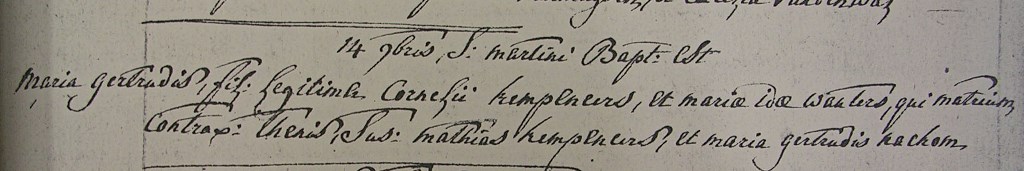 et
14 9bris, S: martini Bapt: Est
maria gertrudis, fil: Legitima Cornelii kempeneers, et mariæ idæ wauters, qui matrium
Contrax: Thenis, Sus: mathias kempeneers, et maria gertrudis hachom